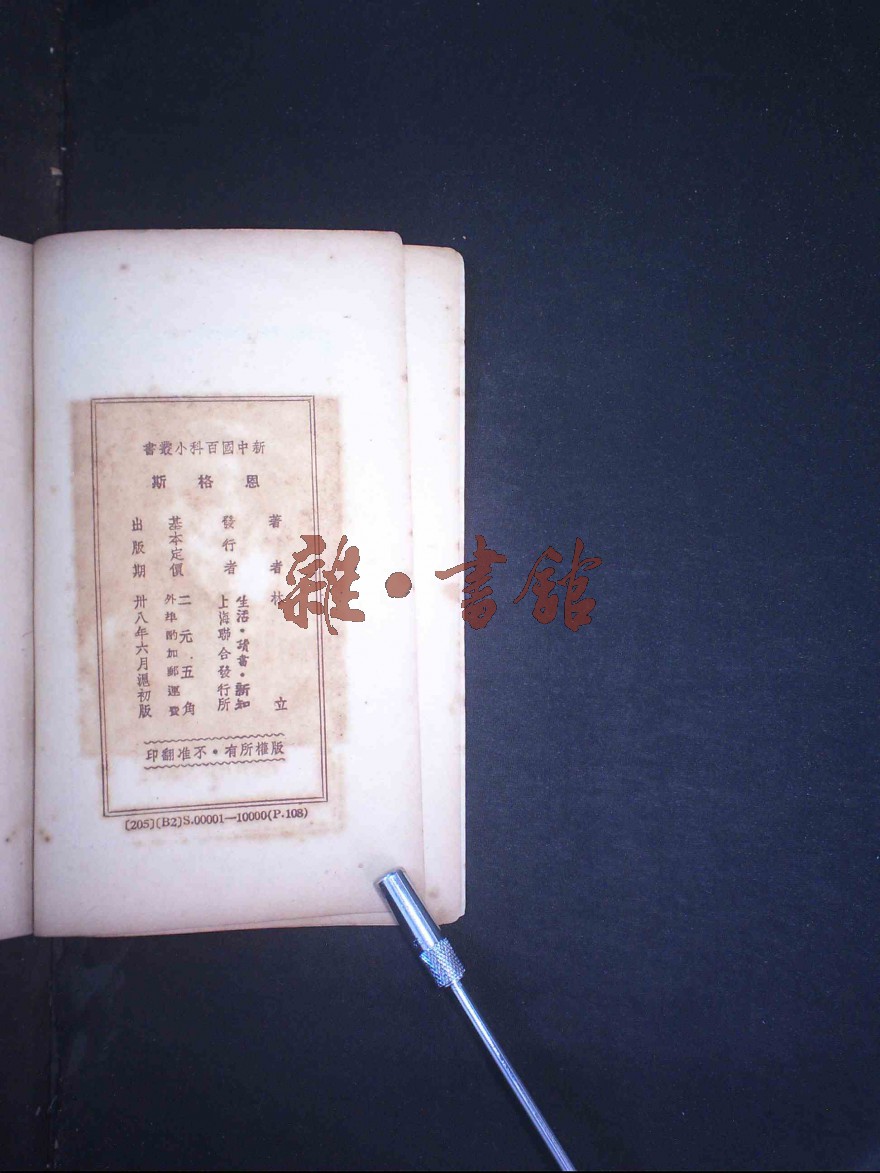 新中國百科小叢書
恩格斯
著者 林立
發行者 生活・讀書・新知
上海聯合發行所
基本定價 二元五角
外埠酌加郵運費
出版期 卅八年六月滬初版
版權所有・不准翻印
[205][B2]S.00001—10000(P.108)
雜・書館